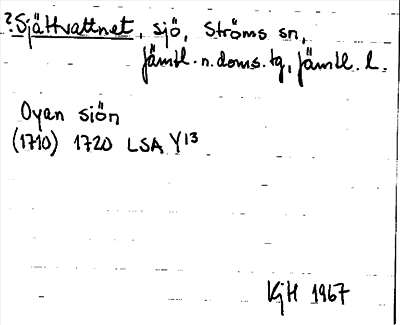 ?Sjättvattnet, sjö, Ströms sn,
Jämtl. n. doms. tg, Jämtl. l.
Oyan siön
(1710) 1720 LSA Y13
KjH 1967